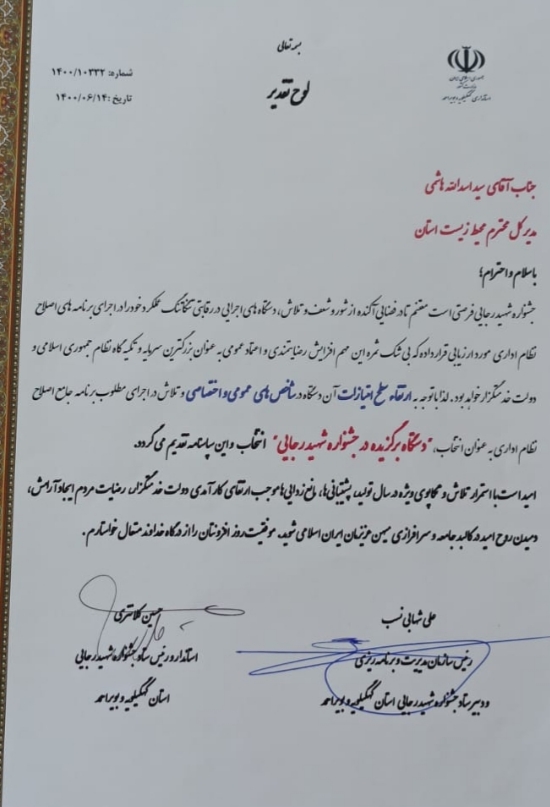 بسمه تعالی
لوح تقدیر
شماره: ۱۴۰۰/۱۰۳۳۲
تاریخ: ۱۴۰۰/۰۶/۱۴
جمهوری اسلامی ایران
استانداری کهگیلویه و بویراحمد
جناب آقای سید اسدالله هاشمی
مدیر کل محترم محیط زیست استان
با سلام و احترام؛
جشنواره شهید رجایی فرصتی است مغتنم تا در فضایی آکنده از شور و شعف و تلاش، دستگاه های اجرایی در رقابتی تنگاتنگ عملکرد خود را در اجرای برنامه های اصلاح
نظام اداری مورد ارزیابی قرار داده که بی شک ثمره این مهم افزایش رضایتمندی و اعتماد عمومی به عنوان بزرگترین سرمایه و تکیه گاه نظام جمهوری اسلامی و
دولت خدمتگزار خواهد بود. لذا با توجه به ارتقاء سطح امتیازات آن دستگاه در شاخص های عمومی و اختصاصی و تلاش در اجرای مطلوب برنامه جامع اصلاح
نظام اداری به عنوان انتخاب، "دستگاه برگزیده در جشنواره شهید رجایی" انتخاب و این سپاسنامه تقدیم می گردد.
امید است با استمرار تلاش و تکاپوی ویژه در سال تولید، پشتیبانی ها، مانع زدایی ها موجب ارتقای کارآمدی دولت خدمتگزار، رضایت مردم ایجاد آرامش،
دمیدن روح امید در کالبد جامعه و سرافرازی میهن عزیزمان ایران اسلامی شوید. موفقیت روز افزونتان را از درگاه خداوند متعال خواستارم.
علی شهابی نسب
رئیس سازمان مدیریت و برنامه ریزی
و دبیر ستاد جشنواره شهید رجایی استان کهگیلویه و بویراحمد
حسین کلانتری
استاندار و رئیس ستاد جشنواره شهید رجایی
استان کهگیلویه و بویراحمد